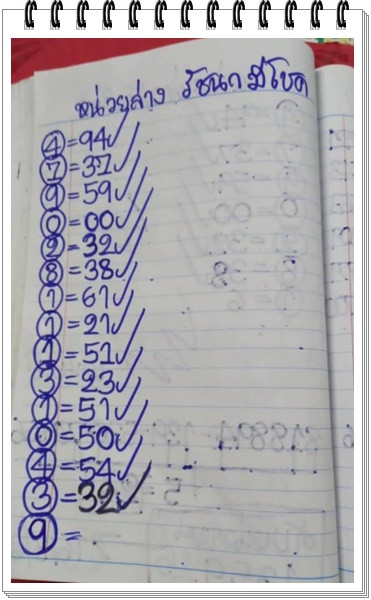 หน่วยล่าง รัชนก มีโชค
4=94✓
7=37✓
9=59✓
0=00✓
2=32✓
8=38✓
1=61✓
1=21✓
1=51✓
3=23✓
1=51✓
0=50✓
4=54✓
3=32✓
9=